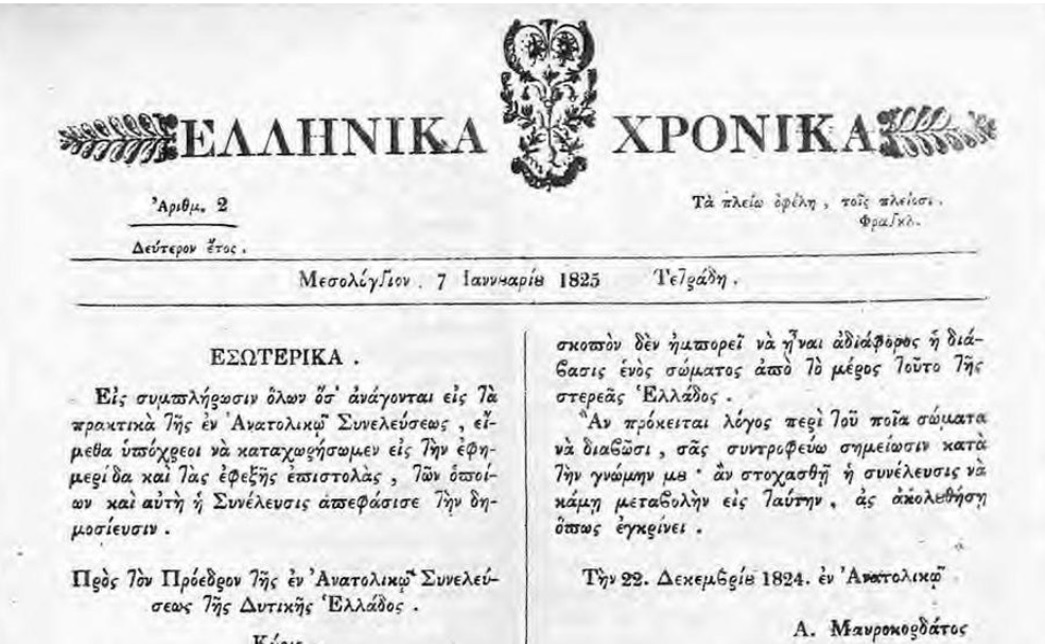 ΕΛΛΗΝΙΚΑ ΧΡΟΝΙΚΑ
Ἀριθμ. 2
Δεύτερον ἔτος.
Τὰ πλείω ὀφέλη, τοῖς πλείοσι.
Φραγκλ.
Μεσολόγγιον. 7 Ἰαννουαρίου 1825 Τετράδη.
ΕΣΩΤΕΡΙΚΑ.
Εἰς συμπλήρωσιν ὅλων ὅσ' ἀνάγονται εἰς τὰ
πρακτικὰ τῆς ἐν Ἀνατολικῷ Συνελεύσεως, εἴ-
μεθα ὑπόχρεοι νὰ καταχωρήσωμεν εἰς τὴν ἐφη-
μερίδα καὶ τὰς ἐφεξῆς ἐπιστολὰς, τῶν ὁποί-
ων καὶ αὐτὴ ἡ Συνέλευσις ἀπεφάσισε τὴν δη-
μοσίευσιν.
Πρὸς τὸν Πρόεδρον τῆς ἐν Ἀνατολικῷ Συνελεύ-
σεως τῆς Δυτικῆς Ἑλλάδος.
σκοπὸν δὲν ἠμπορεῖ νὰ ἦναι ἀδιάφορος ἡ διά-
βασις ἑνὸς σώματος ἀπὸ τὸ μέρος τοῦτο τῆς
στερεᾶς Ἑλλάδος.
Ἂν πρόκειται λόγος περὶ τοῦ ποῖα σώματα
νὰ διαβῶσι, σᾶς συντροφεύω σημείωσιν κατὰ
τὴν γνώμην μου· ἂν στοχασθῇ ἡ συνέλευσις νὰ
κάμῃ μεταβολὴν εἰς ταύτην, ἂς ἀκολουθήσῃ
ὅπως ἐγκρίνει.
Τὴν 22. Δεκεμβρίου 1824. ἐν Ἀνατολικῷ
Α. Μαυροκορδάτος